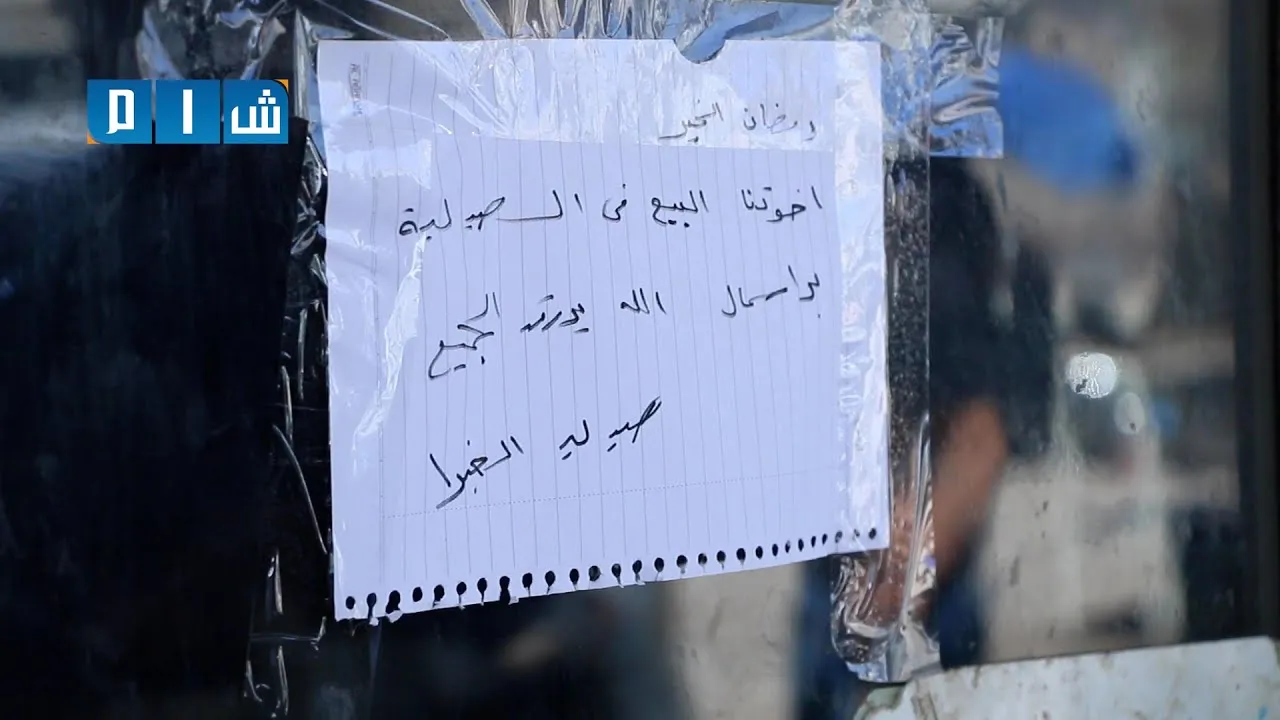 شام
رمضان الخير
اخوتنا البيع في الصيدلية
براسمال الله يرزق الجميع
صيدلية الخبرا